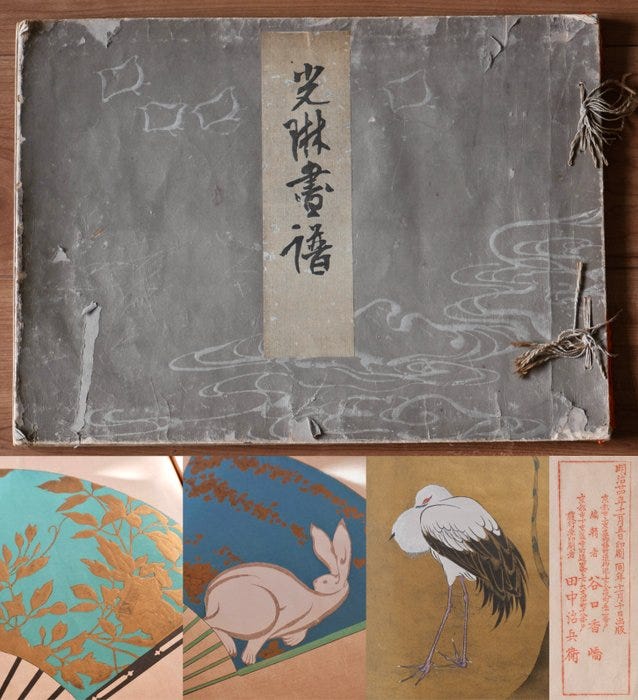 光琳畫譜
明治廿四年十一月五日印刷 同年十一月十日出版
編輯者 谷口香嶠
田中治兵衛